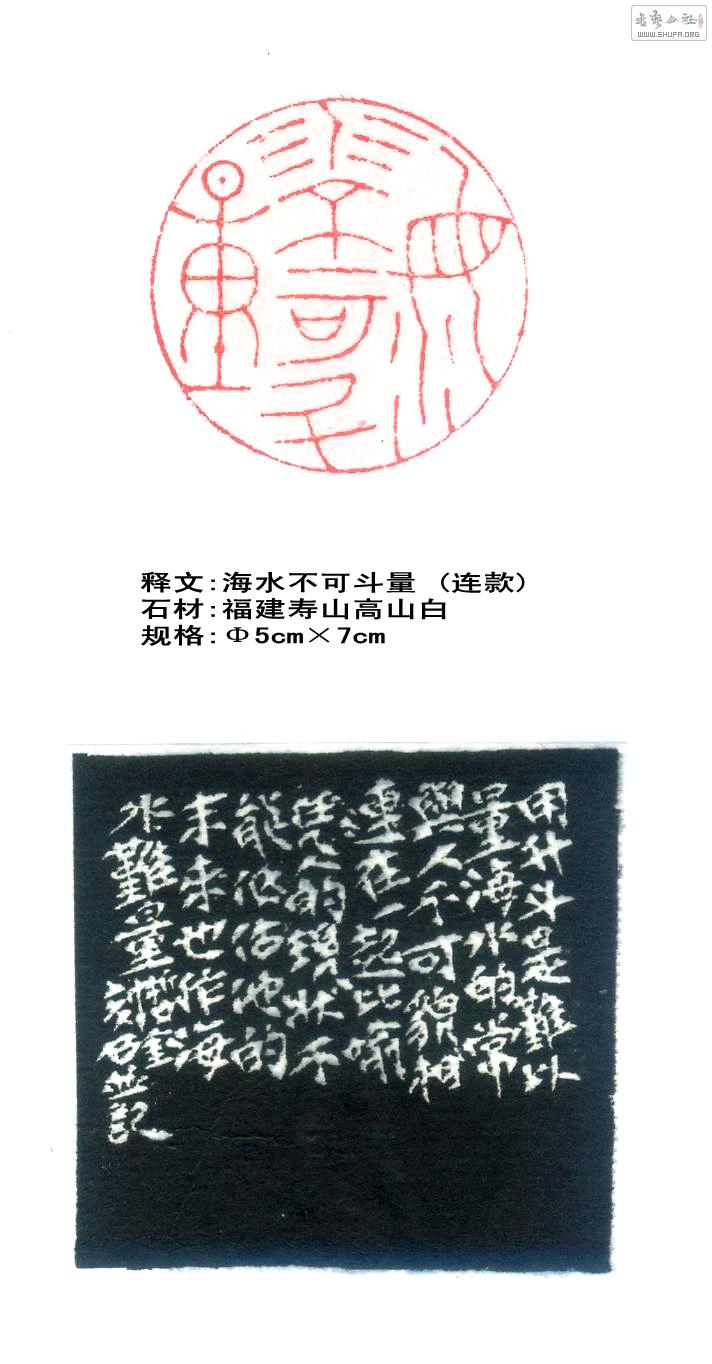 书艺公社
WWW.SHUFA.ORG
海水
不可斗
量
释文:海水不可斗量（连款）
石材:福建寿山高山白
规格:Φ5cm×7cm
用升斗是難以
量海水的常
與人不可貌相
連在一起比喻
凭人的現狀不
能低估他的
未来也作海
水難量 刻石並記